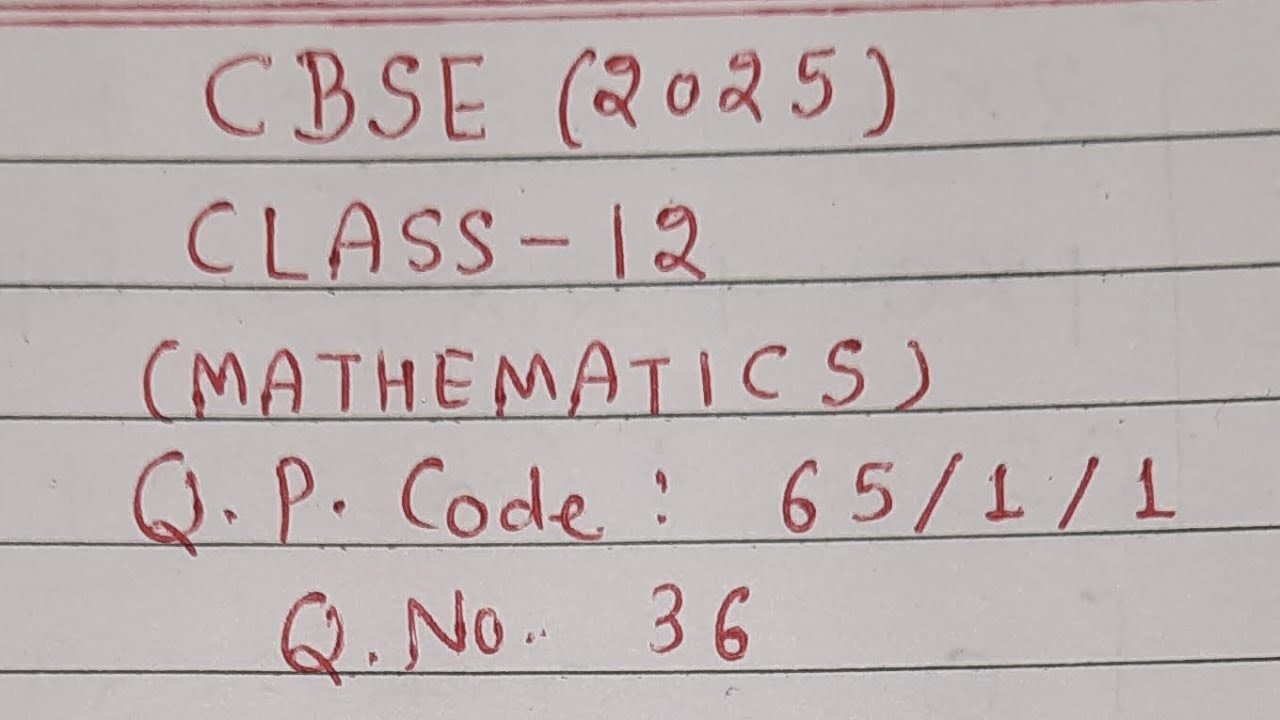 CBSE (2025)
CLASS-12
(MATHEMATICS)
Q.P. Code : 65/1/1
Q.No. 36